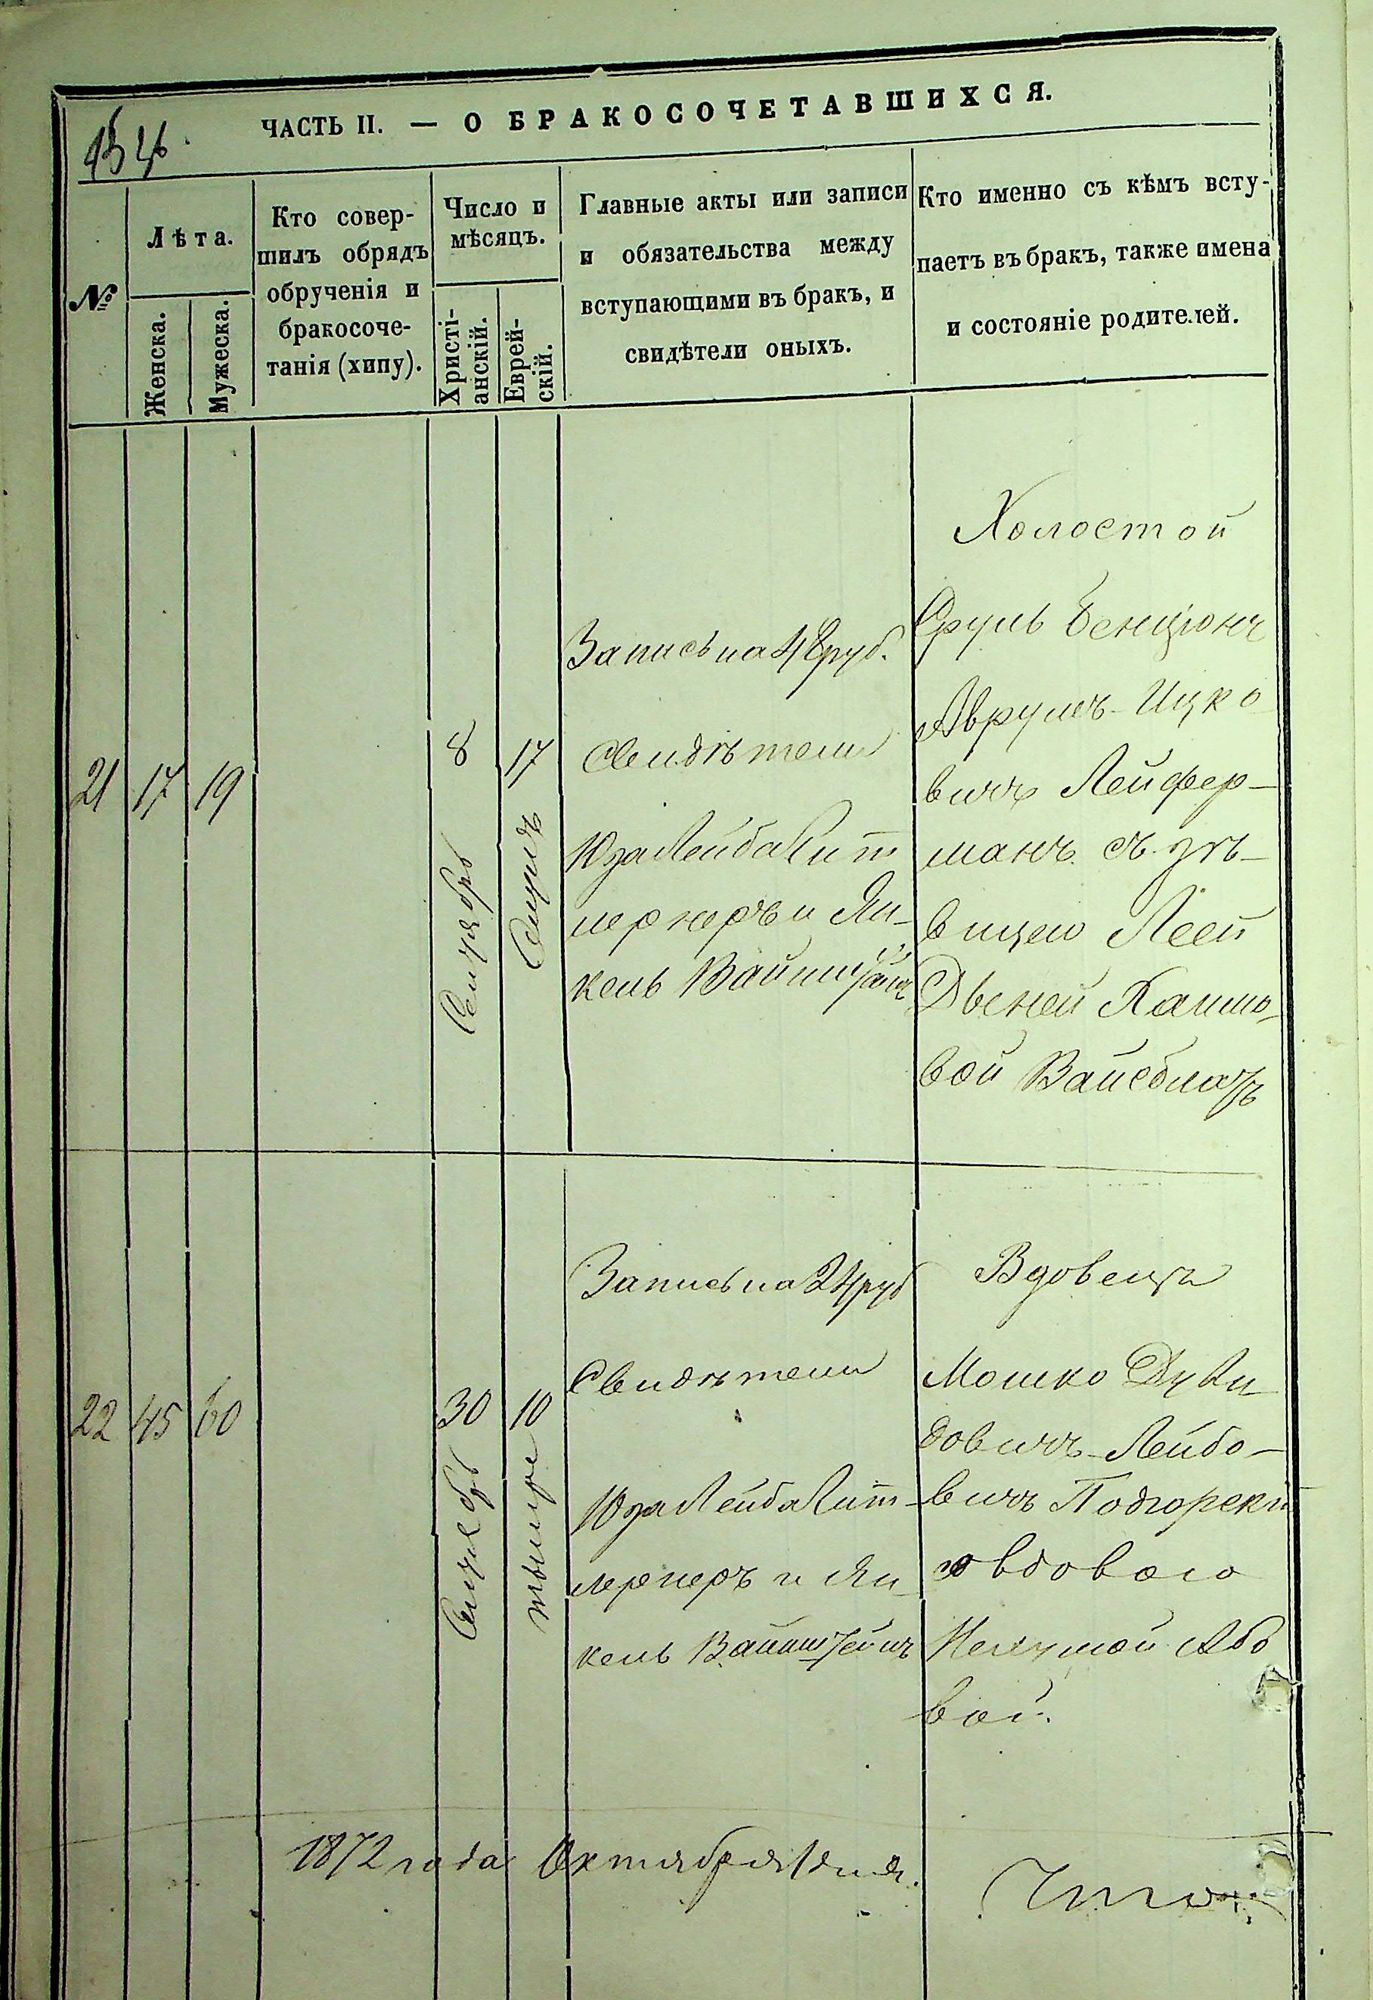 ЧАСТЬ II. — О БРАКОСОЧЕТАВШИХСЯ.
№
Лѣта.
Женска.
Мужеска.
Кто совер-
шилъ обрядъ
обрученія и
бракосоче-
танія (хипу).
Число и
мѣсяцъ.
Христі-
анскій.
Еврей-
скій.
Главные акты или записи
и обязательства между
вступающими въ бракъ, и
свидѣтели оныхъ.
Кто именно съ кѣмъ всту-
паетъ въ бракъ, также имена
и состояніе родителей.
21
17
19
8
Сентябрь
17
Запись на 48 руб.
Свидѣтели
Юза Лейба Лит
лернеръ и Ян-
кель Вайнштейнъ
Холостой
Сруль Бенціонъ
Аврумъ-Ицко
вичъ Лейфер-
манъ съ дѣ-
вицею Леей
Двеней Хаимо-
вой Вайсблатъ
22
45
60
30
Сентябрь
10
тышре
Запись на 24 руб
Свидѣтели
Юза Лейба Лит-
лернеръ и Ян-
кель Вайнштейнъ
Вдовецъ
Мошко
довичъ Лейбо-
вичъ Подгорскій
со вдовою
Нехумой Або
вой.
1872 года Октября 1 дня.